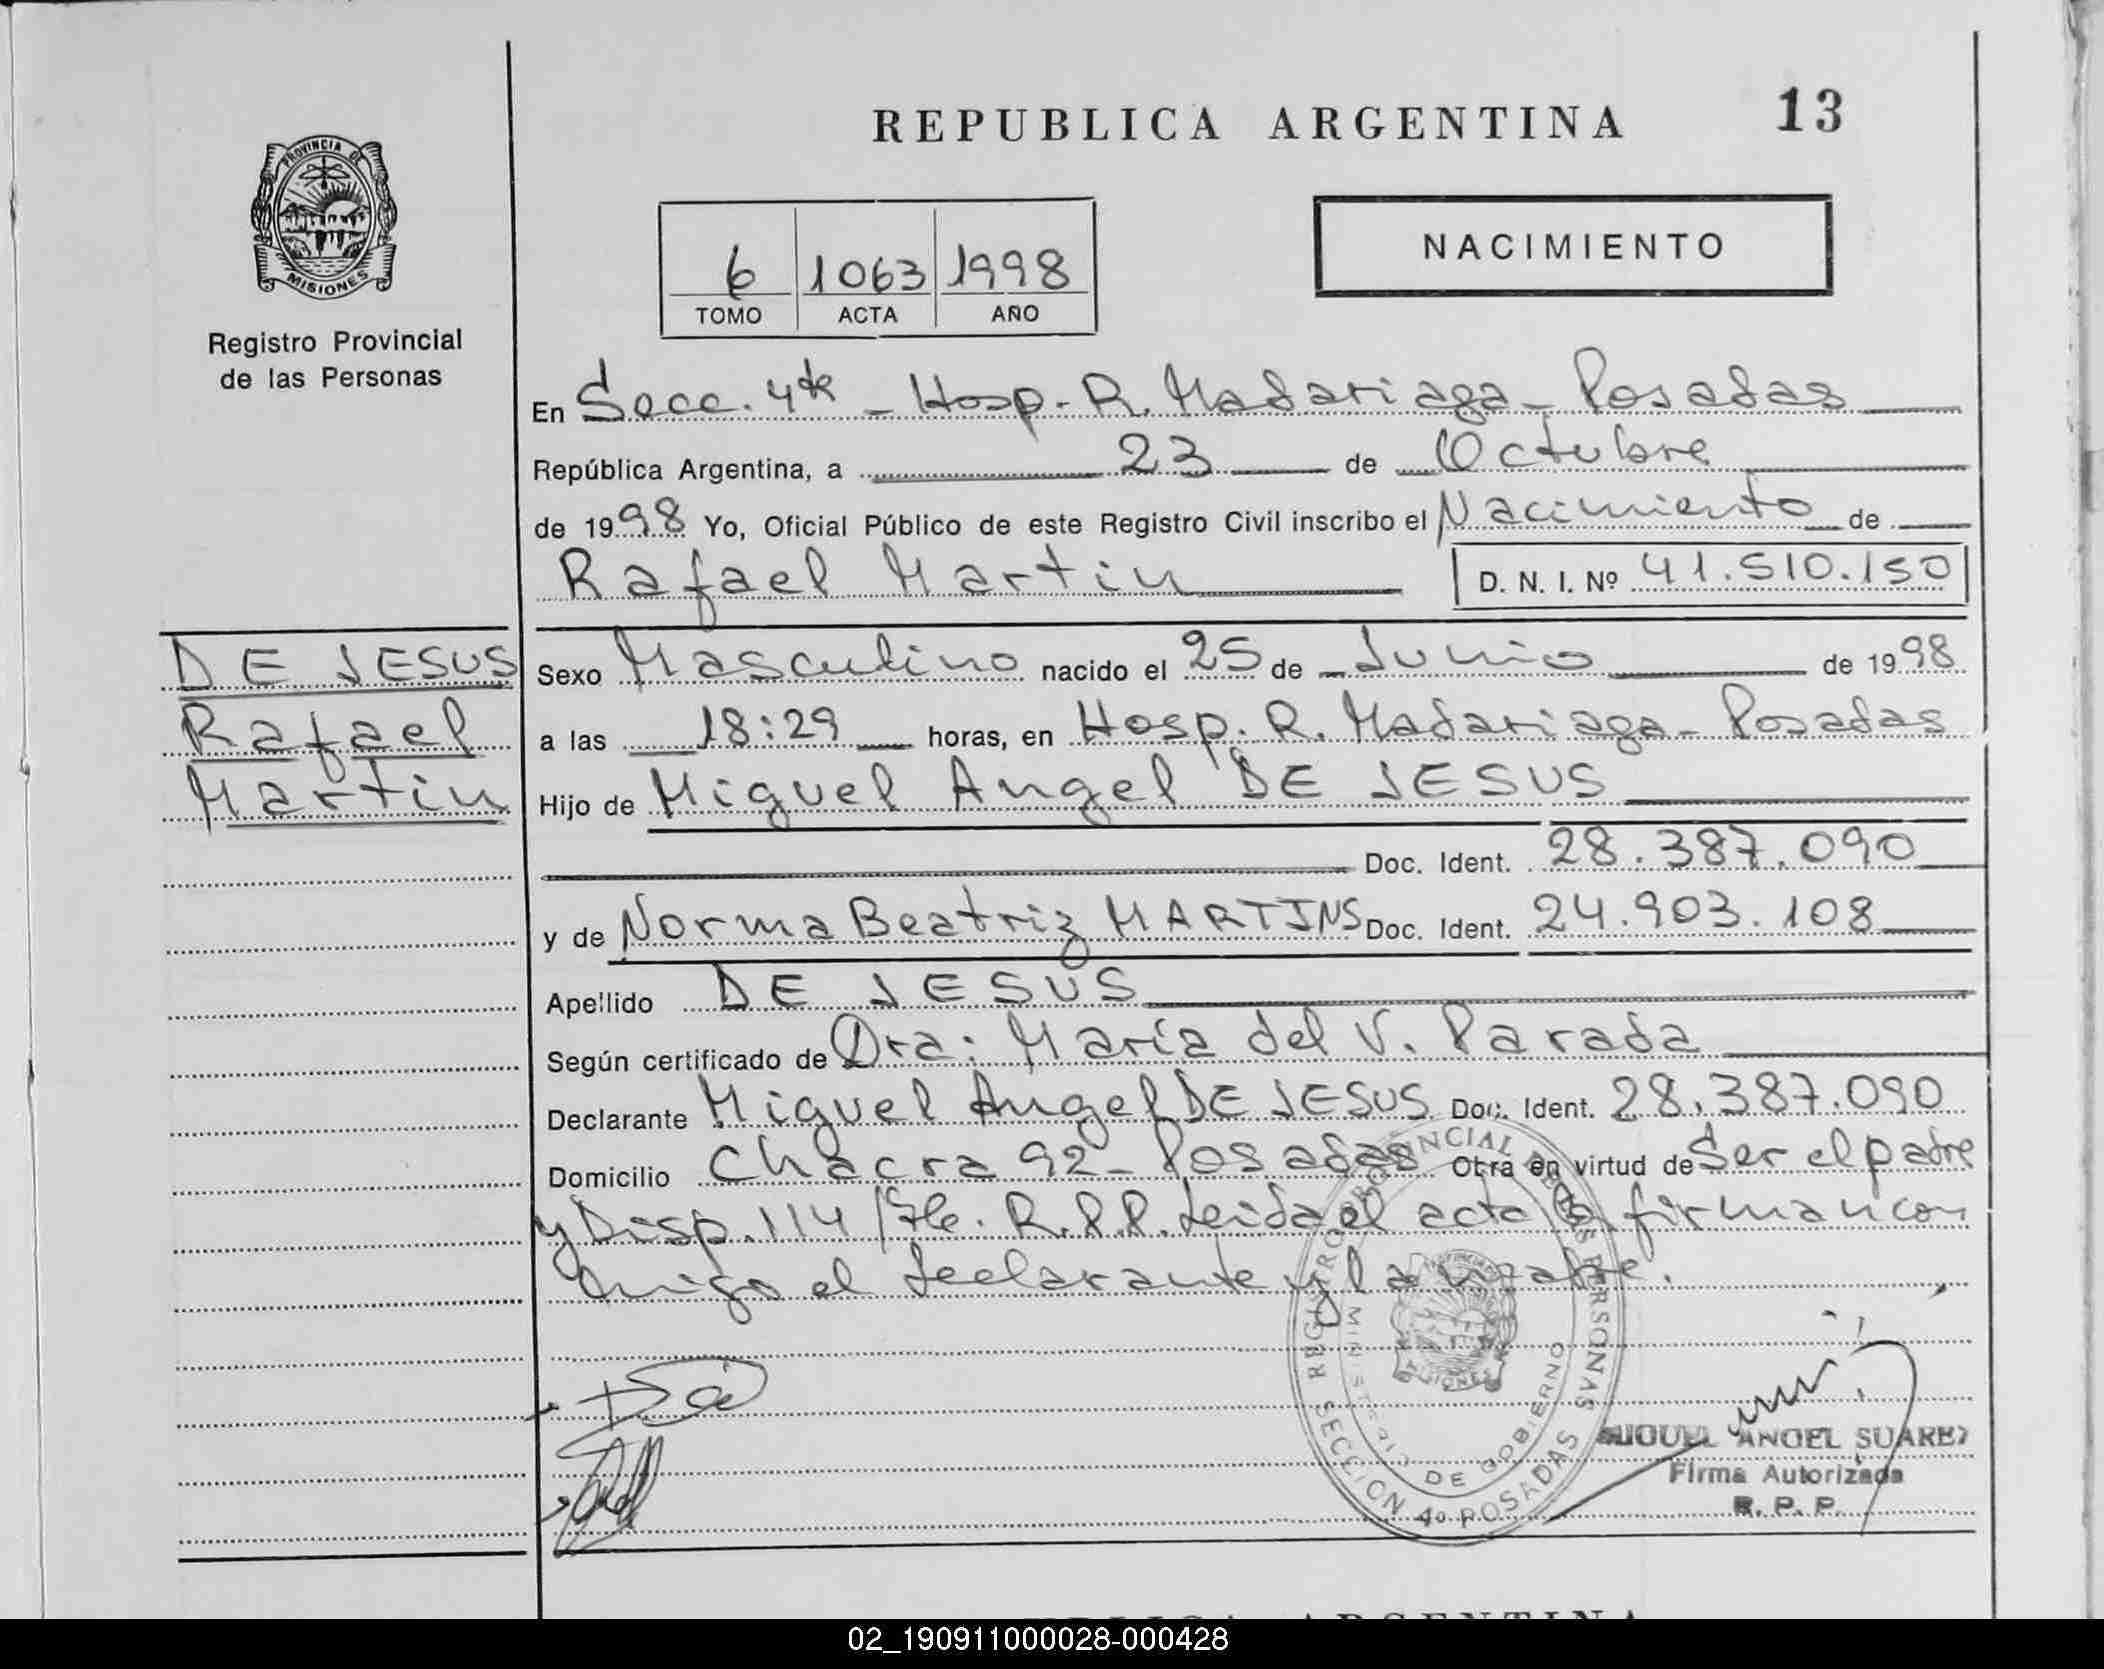 REPUBLICA ARGENTINA 13
PROVINCIA DE
MISIONES
Registro Provincial
de las Personas
NACIMIENTO
6 1063 1998
TOMO ACTA AÑO
En Secc. 4ta - Hosp. R. Madariaga - Posadas
República Argentina, a 23 de Octubre
de 1998 Yo, Oficial Público de este Registro Civil inscribo el Nacimiento de
Rafael Martin D. N. I. Nº 41.510.150
DE JESUS
Rafael
Martin
Sexo Masculino nacido el 25 de Junio de 1998
a las 18:29 horas, en Hosp. R. Madariaga - Posadas
Hijo de Miguel Angel DE JESUS
Doc. Ident. 28.387.090
y de Norma Beatriz MARTINS Doc. Ident. 24.903.108
Apellido DE JESUS
Según certificado de Dra: María del V. Parada
Declarante Miguel Angel DE JESUS Doc. Ident. 28.387.090
Domicilio Chacra 92 - Posadas Otra en virtud de Ser el padre
y Disp. 114/76. R.P.P. Leida el acta la firman con
migo el declarante y la madre.
REGISTRO PROVINCIAL DE LAS PERSONAS
MINISTERIO DE GOBIERNO
SECCION 4º POSADAS
MIGUEL ANGEL SUAREZ
Firma Autorizada
R. P. P.
REPUBLICA ARGENTINA
02_190911000028-000428